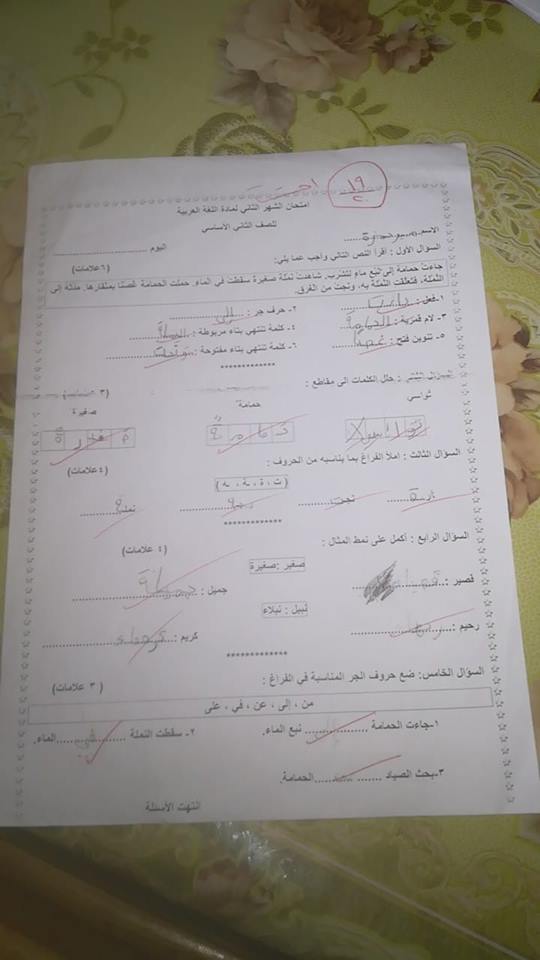 ١٩
٢٠
أحسنت
امتحان الشهر الثاني لمادة اللغة العربية
للصف الثاني الأساسي
الاسم: ............ اليوم ............
السؤال الأول : اقرأ النص التالي وأجب عما يلي: (٦علامات)
جاءت حمامة إلى نبع ماءٍ لتشرب، شاهدت نملة صغيرة سقطت في الماءِ، حملت الحمامة غصنًا بمنقارها، مدّته إلى
النملة، فتعلّقت النملة به، ونجت من الغرق.
١-فعل : جاءت ٢- حرف جر : إلى
٣- لام قمرية : الحمامة ٤- كلمة تنتهي بتاء مربوطة :
٥- تنوين فتح : غصنا ٦- كلمة تنتهي بتاء مفتوحة :
************
السؤال الثاني : حلل الكلمات الى مقاطع : (٣ علامات)
تواسي حمامة صغيرة
السؤال الثالث : املأ الفراغ بما يناسبه من الحروف : (٤علامات)
( ت ، ة ، ـة ، ـه )
نجت نملة
************
السؤال الرابع : أكمل على نمط المثال : (٤ علامات)
صغير : صغيرة
قصير : جميل : جميلة
نبيل : نبلاء
رحيم : كريم : كرماء
************
السؤال الخامس: ضع حروف الجر المناسبة في الفراغ : (٣ علامات)
من ، إلى ، عن ، في ، على
١-جاءت الحمامة ............ نبع الماء. ٢- سقطت النملة في الماء.
٣-بحث الصياد ............ الحمامة.
انتهت الأسئلة